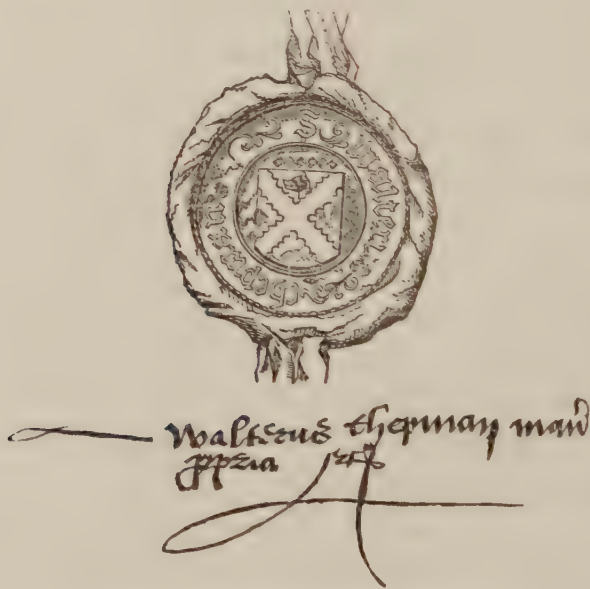 S walterus chepman
walterus chepman manu
ppria